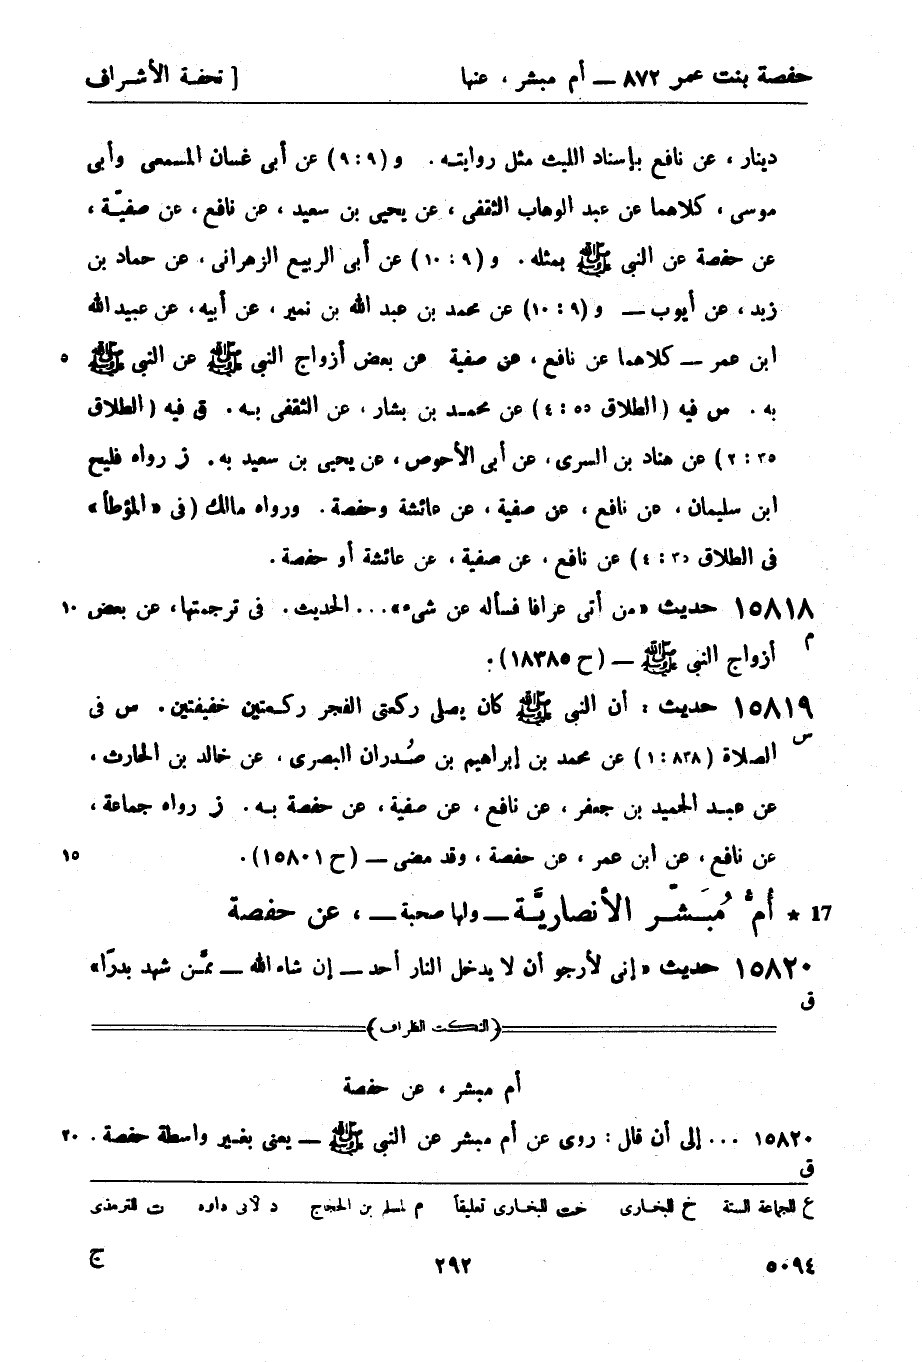 حفصة بنت عمر ٨٧٢ — أم مبشر ، عنها [ تحفة الأشراف
دينار ، عن نافع بإسناد الليث مثل روايته . و (٩ : ٩) عن أبى غسان المسمعى وأبى
موسى ، كلاهما عن عبد الوهاب الثقفى ، عن يحيى بن سعيد ، عن نافع ، عن صفيّة ،
عن حفصة عن النبى ﷺ بمثله . و (٩ : ١٠) عن أبى الربيع الزهرانى ، عن حماد بن
زيد ، عن أيوب — و (٩ : ١٠) عن محمد بن عبد الله بن نمير ، عن أبيه ، عن عبيد الله
ابن عمر — كلاهما عن نافع ، عن صفية عن بعض أزواج النبى ﷺ عن النبى ﷺ ٥
به . س فيه (الطلاق ٥٥ : ٤) عن محمد بن بشار ، عن الثقفى به . ق فيه (الطلاق
٣٥ : ٢) عن هناد بن السرى ، عن أبى الأحوص ، عن يحيى بن سعيد به . ز رواه فليح
ابن سليمان ، عن نافع ، عن صفية ، عن عائشة وحفصة . ورواه مالك (فى «المؤطأ»
فى الطلاق ٣٥ : ٤) عن نافع ، عن صفية ، عن عائشة أو حفصة .
١٥٨١٨ حديث «من أتى عرافا فسأله عن شىء» ... الحديث . فى ترجمتها ، عن بعض ١٠
م
أزواج النبى ﷺ — (ح ١٨٣٨٥) :
١٥٨١٩ حديث : أن النبى ﷺ كان يصلى ركعتى الفجر ركعتين خفيفتين . س فى
س
الصلاة (٨٣٨ : ١) عن محمد بن إبراهيم بن صُدران البصرى ، عن خالد بن الحارث ،
عن عبد الحميد بن جعفر ، عن نافع ، عن صفية ، عن حفصة به . ز رواه جماعة ،
عن نافع ، عن ابن عمر ، عن حفصة ، وقد مضى — (ح ١٥٨٠١) . ١٥
17 * أمّ مُبَشّر الأنصاريَّة — ولها صحبة — ، عن حفصة
١٥٨٢٠ حديث «إنى لأرجو أن لا يدخل النار أحد — إن شاء الله — ممَّن شهد بدرًا»
ق
(النكت الظراف)
أم مبشر ، عن حفصة
١٥٨٢٠ ... إلى أن قال : روى عن أم مبشر عن النبى ﷺ — يعنى بغير واسطة حفصة . ٢٠
ق
ع للجماعة الستة خ للبخارى خت للبخارى تعليقاً م لمسلم بن الحجاج د لأبى داود ت للترمذى
٥٠٩٤ ٢٩٢ ج